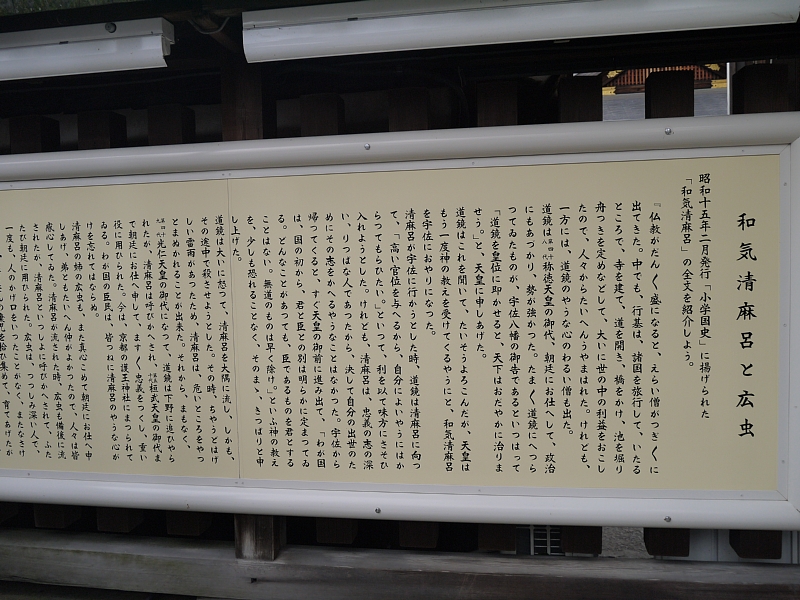 和気清麻呂と広虫
昭和十五年二月発行「小学国史」に揚げられた
「和気清麻呂」の全文を紹介しよう。
『仏教がだん〳〵盛になると、えらい僧がつぎ〳〵に
出てきた。中でも、行基は、諸国を旅行して、いたる
ところで、寺を建て、道を開き、橋をかけ、池を堀り
舟つきを定めなどして、大いに世の中の利益をおこし
たので、人々からたいへんうやまはれた。けれども、
一方には、道鏡のやうな心のわるい僧も出た。
道鏡は第四十八代称徳天皇の御代、朝廷にお仕へして、政治
にもあづかり、勢が強かつた。たま〳〵道鏡にへつら
つてゐたものが、宇佐八幡の御告であるといつはつて
「道鏡を皇位に即かせると、天下はおだやかに治りま
せう。」と、天皇に申しあげた。
道鏡はこれを聞いて、たいそうよろこんだが、天皇は
もう一度神の教えを受けてくるやうにと、和気清麻呂
を宇佐におやりになつた。
清麻呂が宇佐に行かうとした時、道鏡は清麻呂に向つ
て、「高い官位を与へるから、自分によいやうにはか
らつてもらひたい。」といつて、利を以て味方にさそひ
入れようとした。けれども、清麻呂は、忠義の志の深
い、りつぱな人であつたから、決して自分の出世のた
めにその志をかへるやうなことはなかつた。宇佐から
帰つてくると、すぐ天皇の御前に進み出て、「わが国
は、国の初から、君と臣との別は明らかに定まつてゐ
る。どんなことがあつても、臣であるものを君とする
ことはない。無道のものは早く除け。」といふ神の教え
を、少しも恐れることなく、そのまゝ、きつぱりと申
し上げた。
道鏡は大いに怒つて、清麻呂を大隅に流し、しかも、
その途中で殺させようとした。その時、ちやうどはげ
しい雷雨があつたため、清麻呂は、危いところをやつ
とまぬかれることが出来た。それから、まもなく、
第四十九代光仁天皇の御代になつて、道鏡は下野に追ひやら
れたが、清麻呂は呼びかへされ、第五十代桓武天皇の御代ま
で朝廷にお仕へ申して、ます〳〵忠義をつくし、重い
役に用ひられた。今は、京都の護王神社にまつられて
ゐる。わが国の臣民は、皆つねに清麻呂のやうな心が
けを忘れてはならぬ。
清麻呂の姉の広虫も、また真心こめて朝廷にお仕へ申
しあげ、弟ともたいへん仲がよかつたので、人々は皆
感心してゐた。清麻呂が流された時、広虫も備後に流
されたが、清麻呂といつしよに呼びかへされて、ふた
たび朝廷に用ひられた。広虫は、つつしみ深い人で、
一度も、人のかげ口をいつたことがなく、またなさけ